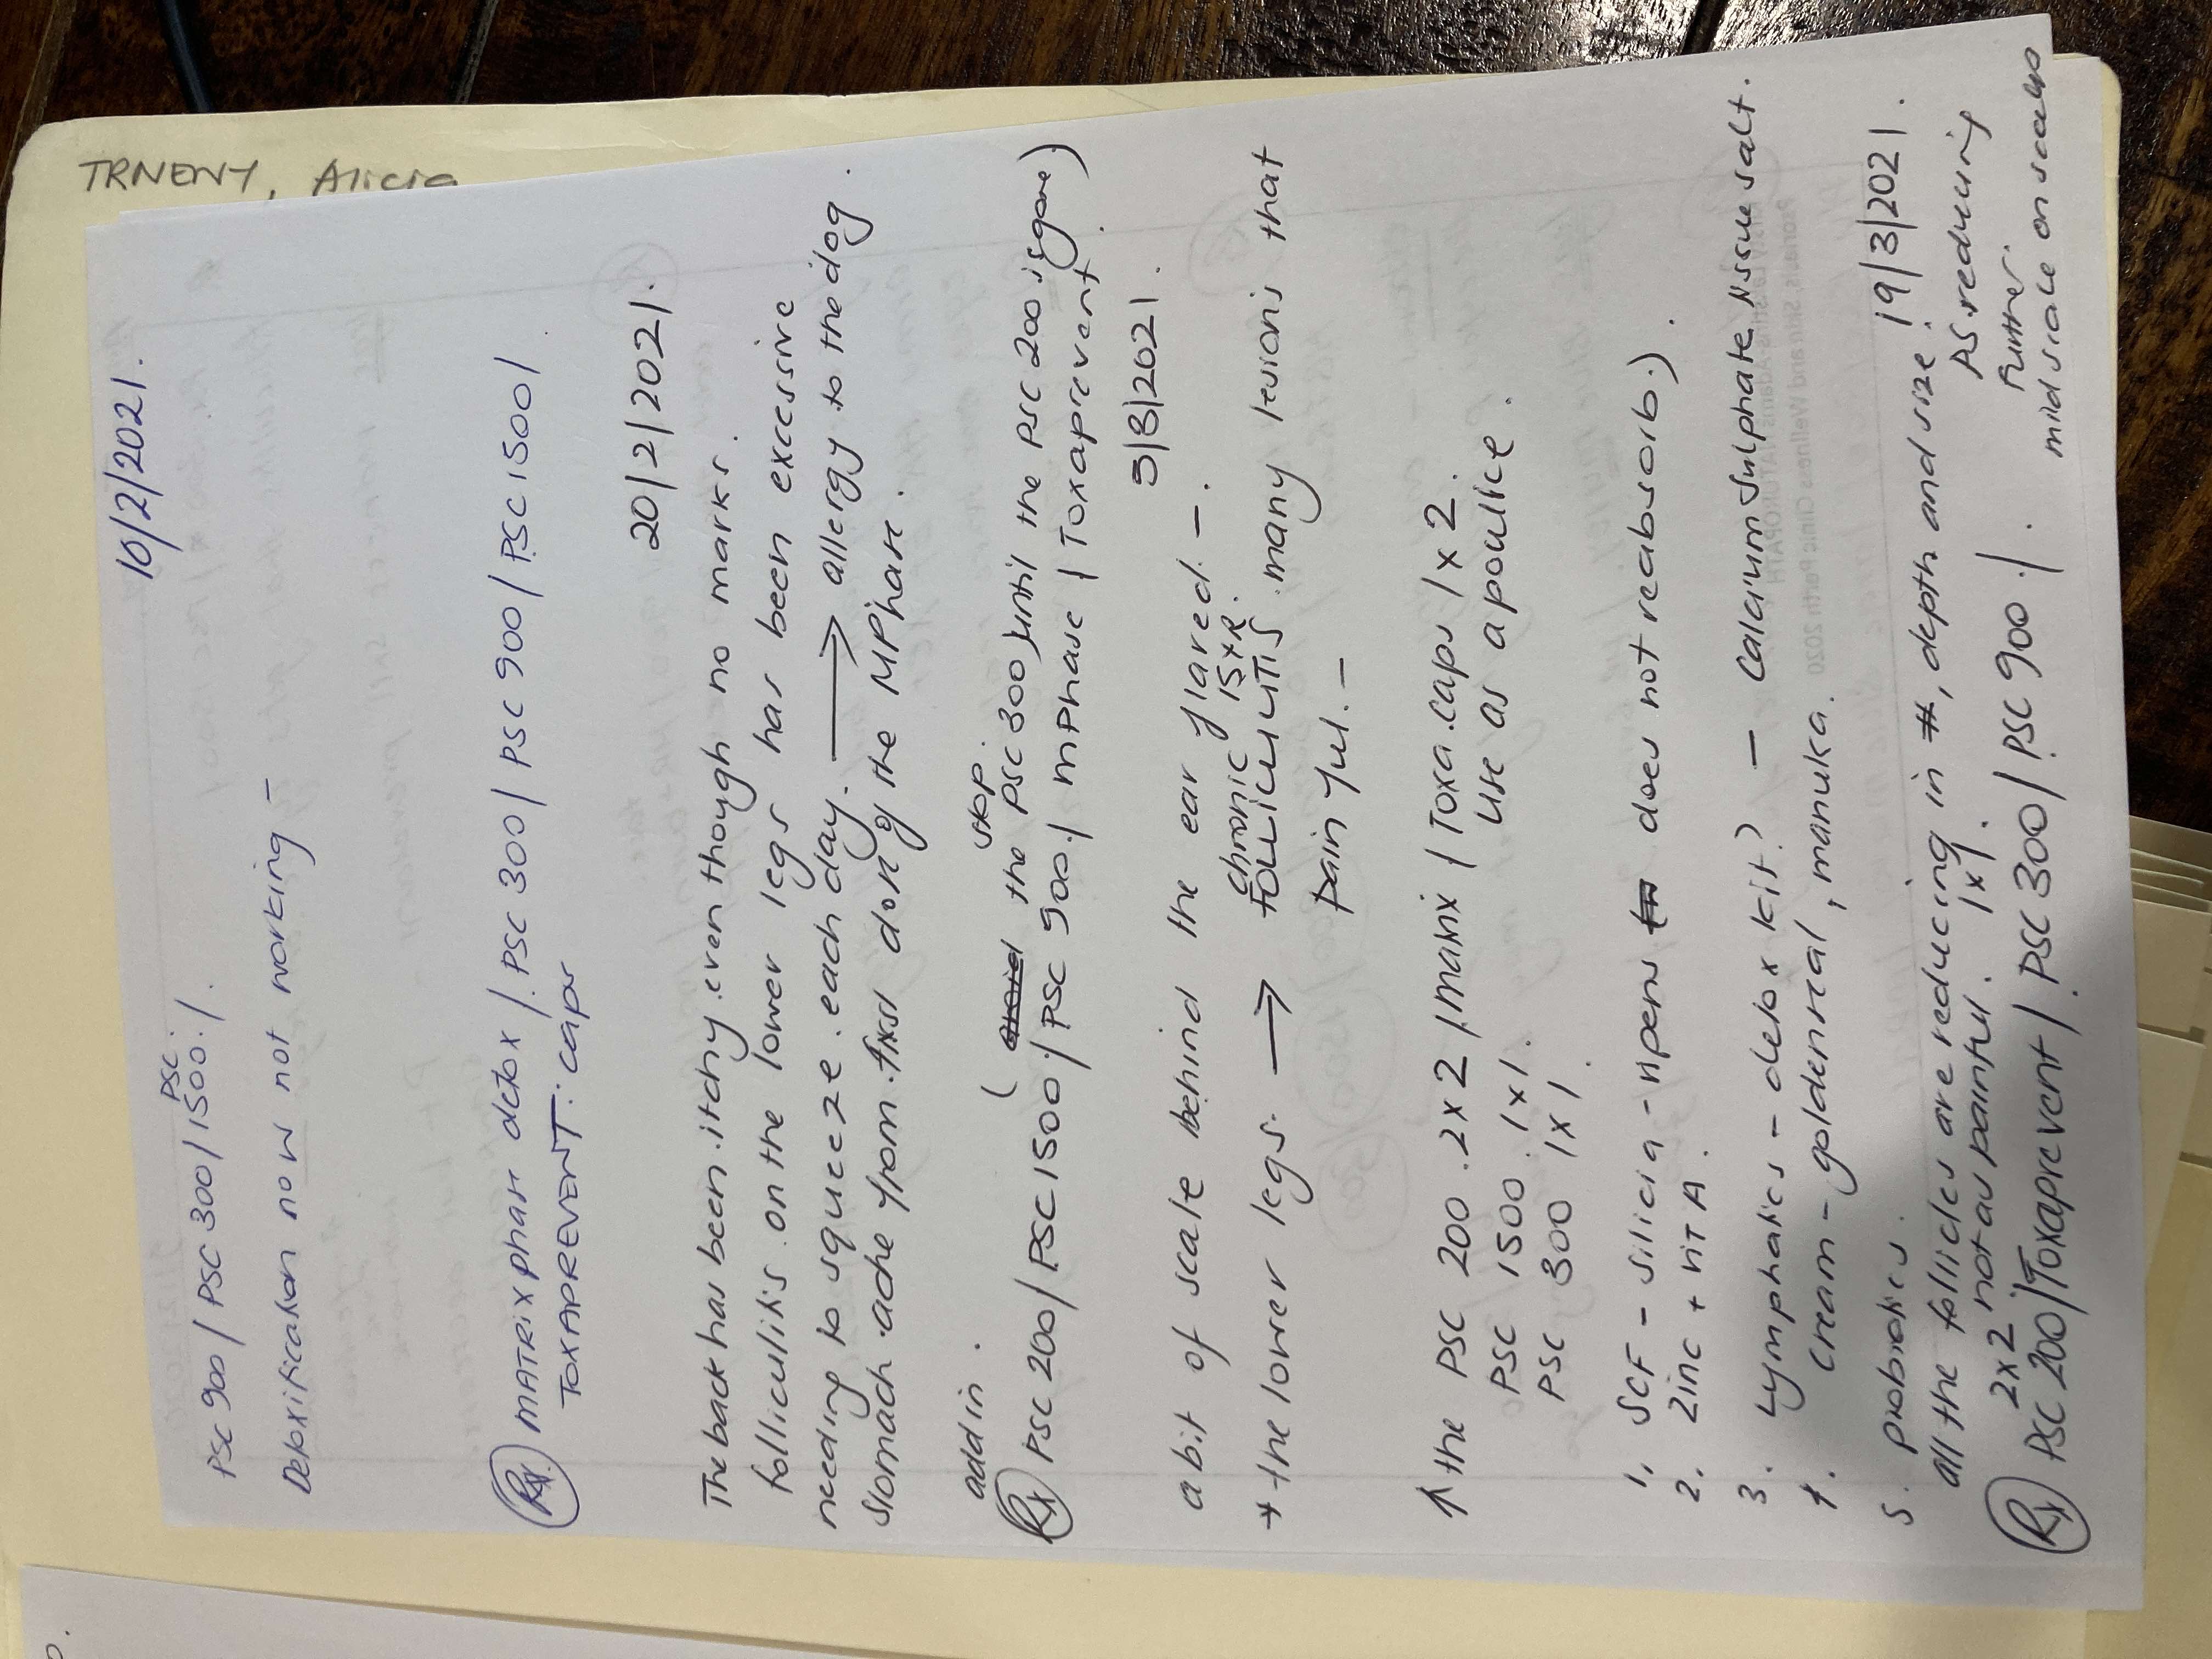 TRNENY, Alicia
10/2/2021.
PSC
PSC 900 / PSC 300 / 1500 ./.
Detoxification now not working –
Rx MATRIX phase detox /. PSC 300 / PSC 900 / PSC 1500 /
TOXAPREVENT. caps
20/2/2021.
The back has been itchy even though no marks.
folliculitis on the lower legs has been excessive
needing to squeeze each day. → allergy to the dog.
stomach ache from first dose of the MPhase.
add in.
stop.
( the PSC 300 until the PSC 200 is gone)
Rx PSC 200 / PSC 1500 ./ PSC 900 ./ mPhase / Toxaprevent.
5/3/2021.
a bit of scale behind the ear flared. –.
chronic 15 yR.
+ the lower legs. → FOLLICULITIS. many lesions that
painful. –
↑ the PSC 200 . 2x2 / matrix / Toxa.caps 1x2.
PSC 1500 . 1x1. use as a poultice.
PSC 300 1x1.
1. SCF – silicia – ripens does not reabsorb.)
2. zinc + vit A.
3. Lymphatics – detox kit? – Calcium Sulphate tissue salt.
4. cream – goldenseal, manuka.
5. probiotics. 19/3/2021.
all the follicles are reducing in #, depth and size.
not as painful. PS reducing
further.
mild scale on scalp
2x2 1x1.
Rx PSC 200 / Toxaprevent / PSC 300 / PSC 900 ./.